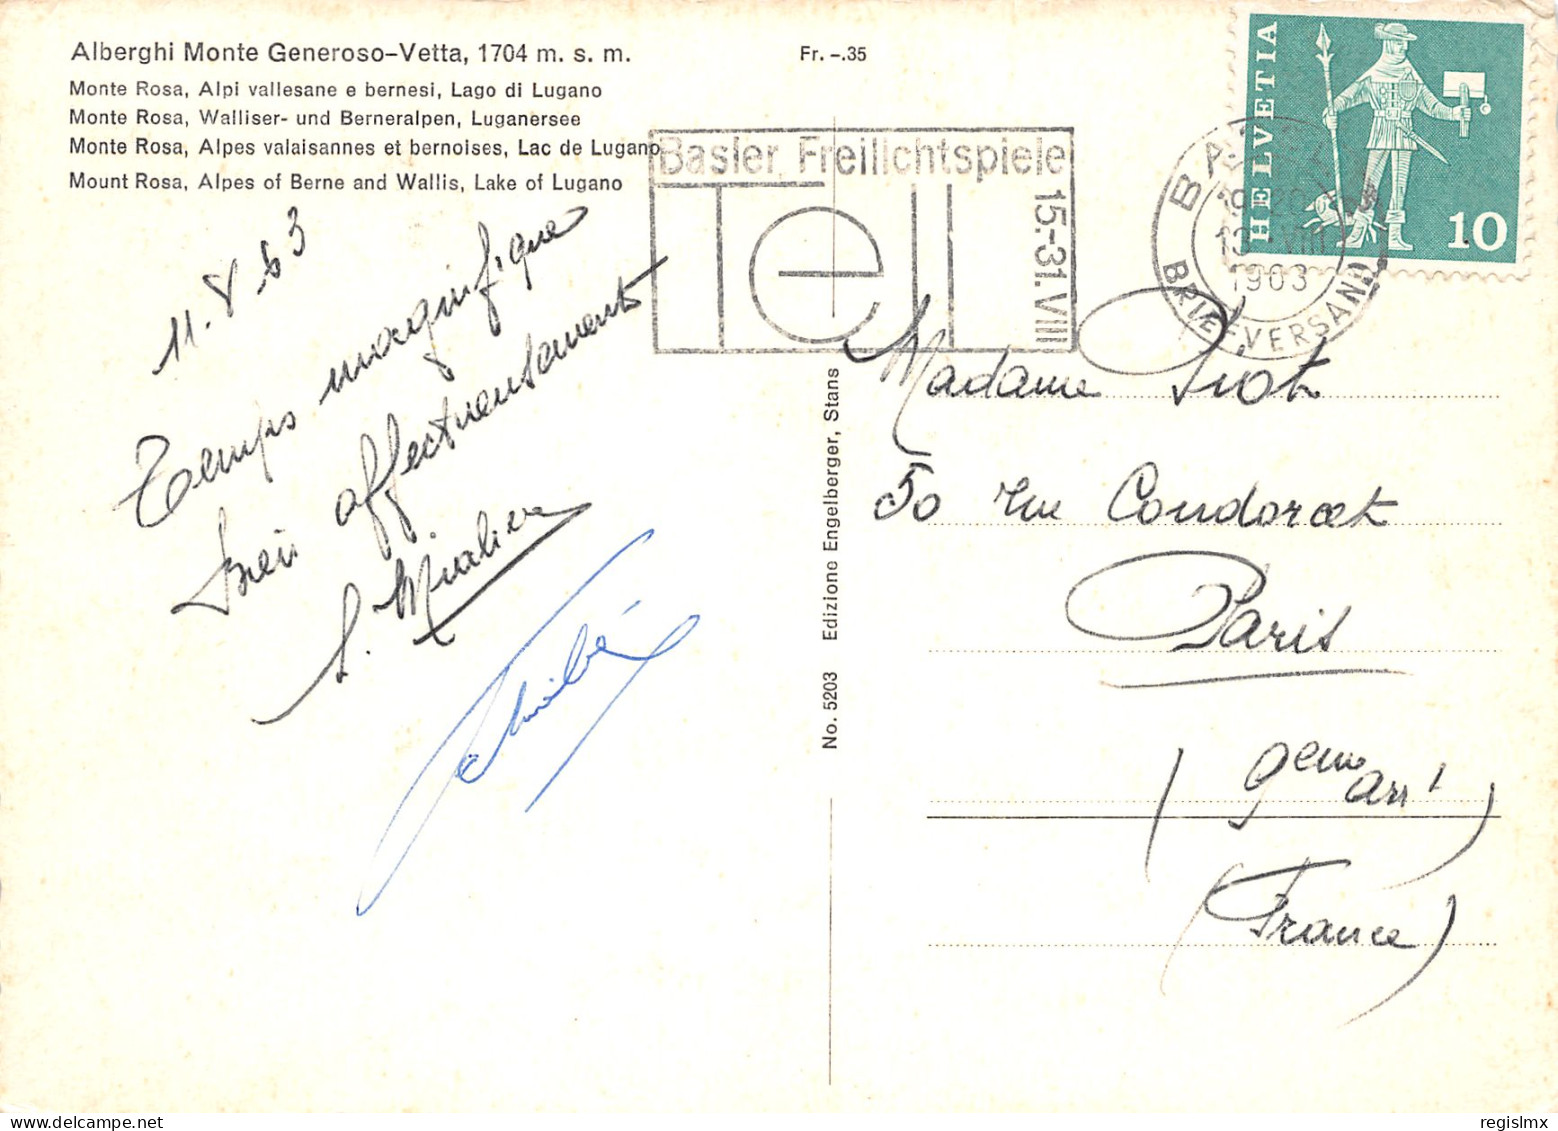 Alberghi Monte Generoso-Vetta, 1704 m. s. m.
Fr. -.35
Monte Rosa, Alpi vallesane e bernesi, Lago di Lugano
Monte Rosa, Walliser- und Berneralpen, Luganersee
Monte Rosa, Alpes valaisannes et bernoises, Lac de Lugano
Mount Rosa, Alpes of Berne and Wallis, Lake of Lugano
Basler Freilichtspiele
Tell
15.-31. VIII
BRIEFVERSAND
1963
HELVETIA
10
11.8.63
Temps magnifique
bien affectueusement
No. 5203 Edizione Engelberger, Stans
Madame
50 rue Condorcet
Paris
(9eme arr')
(France)
regislmx